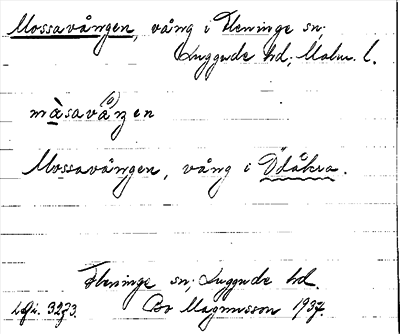 Mossavången, vång i Fleninge sn;
Luggude hd; Malm. l.
màsavå(ů)ŋen
Mossavången, vång i Ödåkra.
Fleninge sn; Luggude hd
Bo Magnusson 1937.